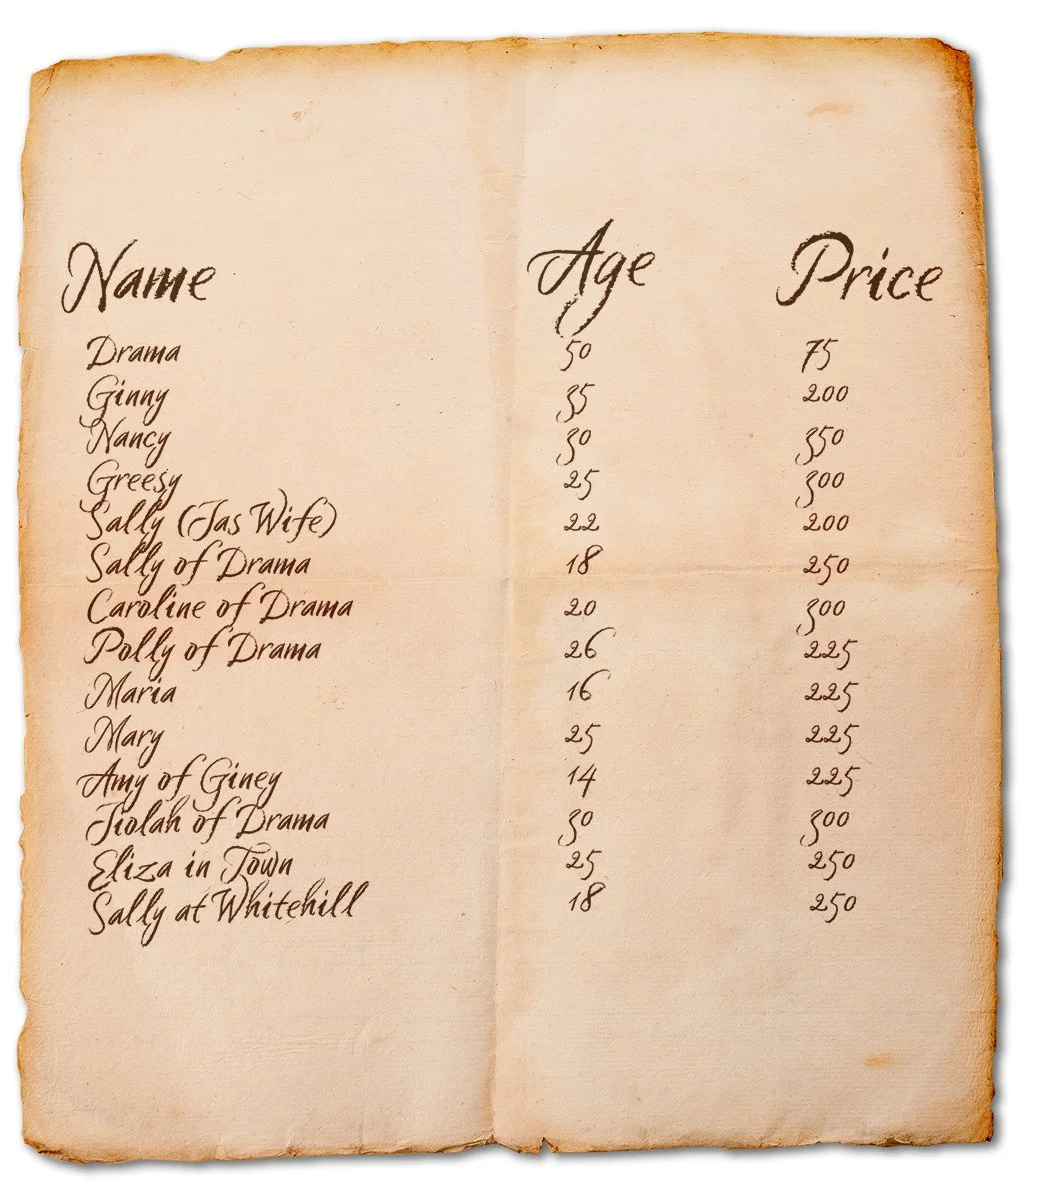 Name Age Price
Drama 50 75
Ginny 35 200
Nancy 30 350
Greesy 25 300
Sally (Jas Wife) 22 200
Sally of Drama 18 250
Caroline of Drama 20 300
Polly of Drama 26 225
Maria 16 225
Mary 25 225
Amy of Giney 14 225
Jiolah of Drama 30 300
Eliza in Town 25 250
Sally at Whitehill 18 250